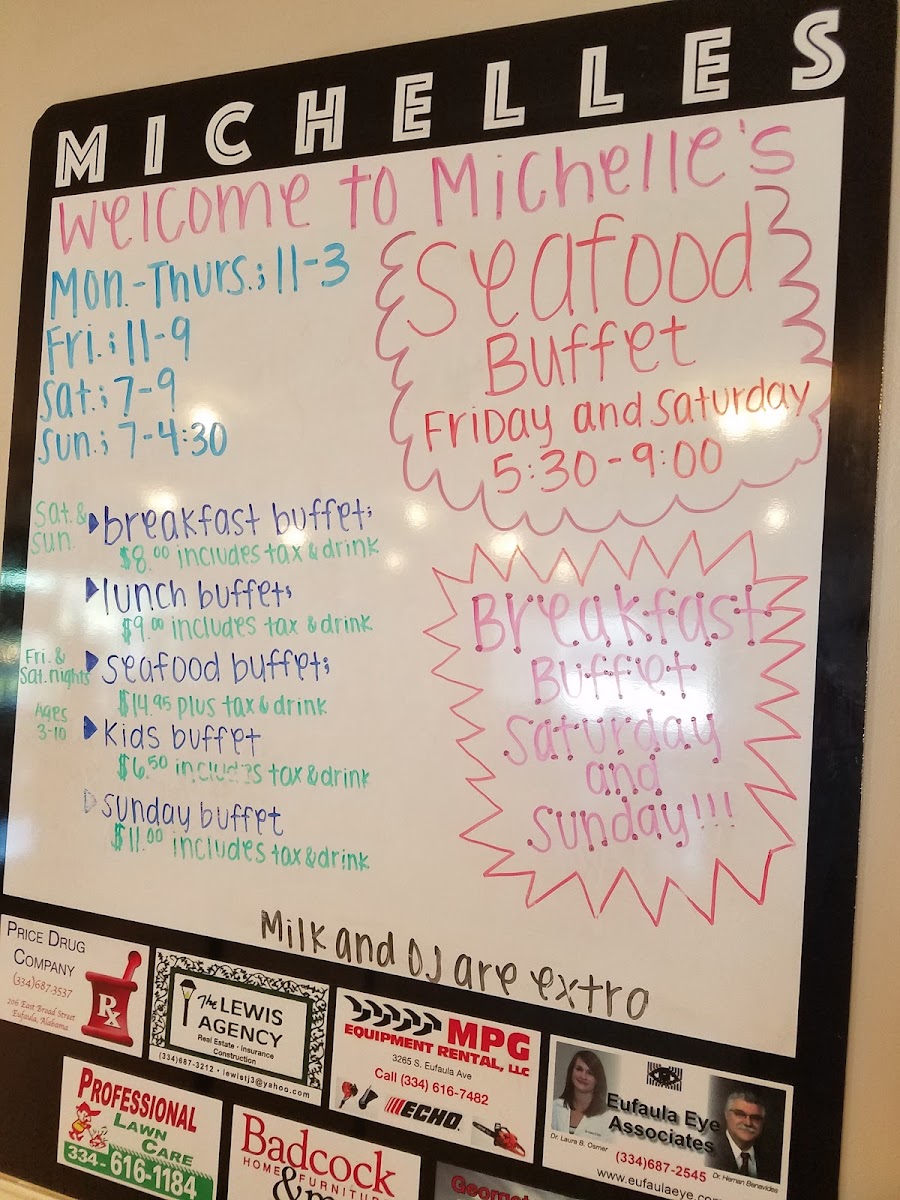 MICHELLES
Welcome to Michelle's
Mon.-Thurs.; 11-3
Fri.; 11-9
Sat.; 7-9
Sun.; 7-4:30
Seafood
Buffet
Friday and Saturday
5:30-9:00
Sat. &
Sun.
breakfast buffet;
$8.00 includes tax & drink
lunch buffet;
$9.00 includes tax & drink
Fri. &
Sat. nights
seafood buffet;
$14.95 plus tax & drink
Ages
3-10
Kids buffet
$6.50 includes tax & drink
sunday buffet
$11.00 includes tax & drink
Breakfast
Buffet
Saturday
and
Sunday!!!
Milk and OJ are extro
PRICE DRUG
COMPANY
(334)687-3537
206 East Broad Street
Eufaula, Alabama
Rx
The LEWIS
AGENCY
Real Estate · Insurance
Construction
(334)687-3212 • lewistj3@yahoo.com
MPG
EQUIPMENT RENTAL, LLC
3265 S. Eufaula Ave
Call (334) 616-7482
ECHO
Eufaula Eye
Associates
Dr. Laura B. Osmer
(334)687-2545
Dr. Hernan Benavides
www.eufaulaeye.com
PROFESSIONAL
LAWN
CARE
334-616-1184
Badcock
HOME FURNITURE
&